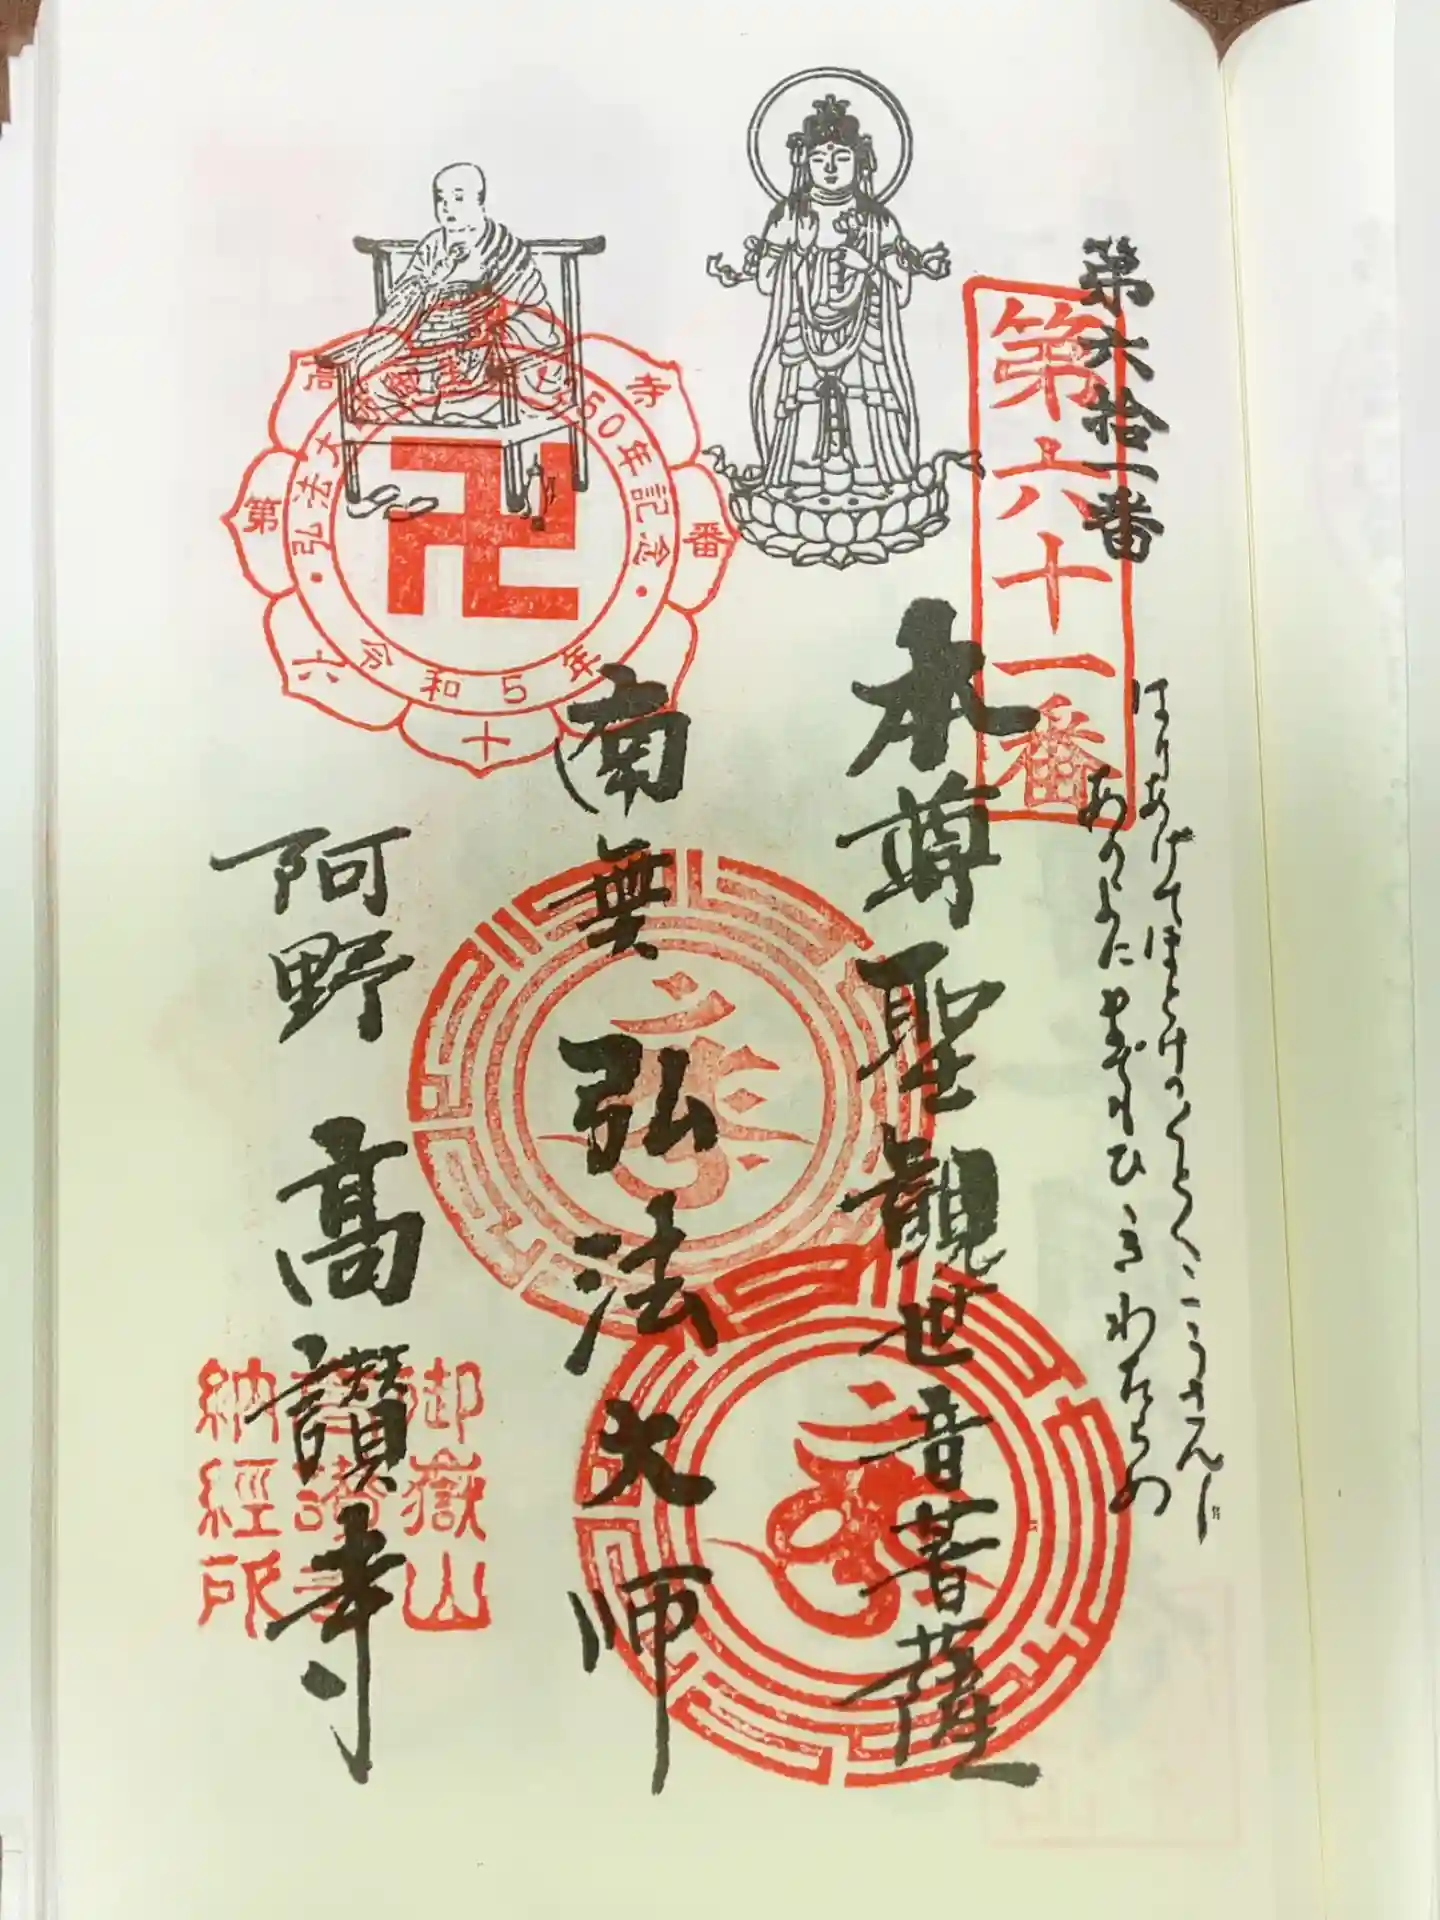 第六拾一番
第六十一番
はりあげてほとけのくどくこうさんじ
あのよにまずもひ
本尊聖観世音菩薩
南無弘法大師
阿野高讃寺
弘法大師
50年記念
令和5年
第六十
番
寺
卍
御嶽山
納経所